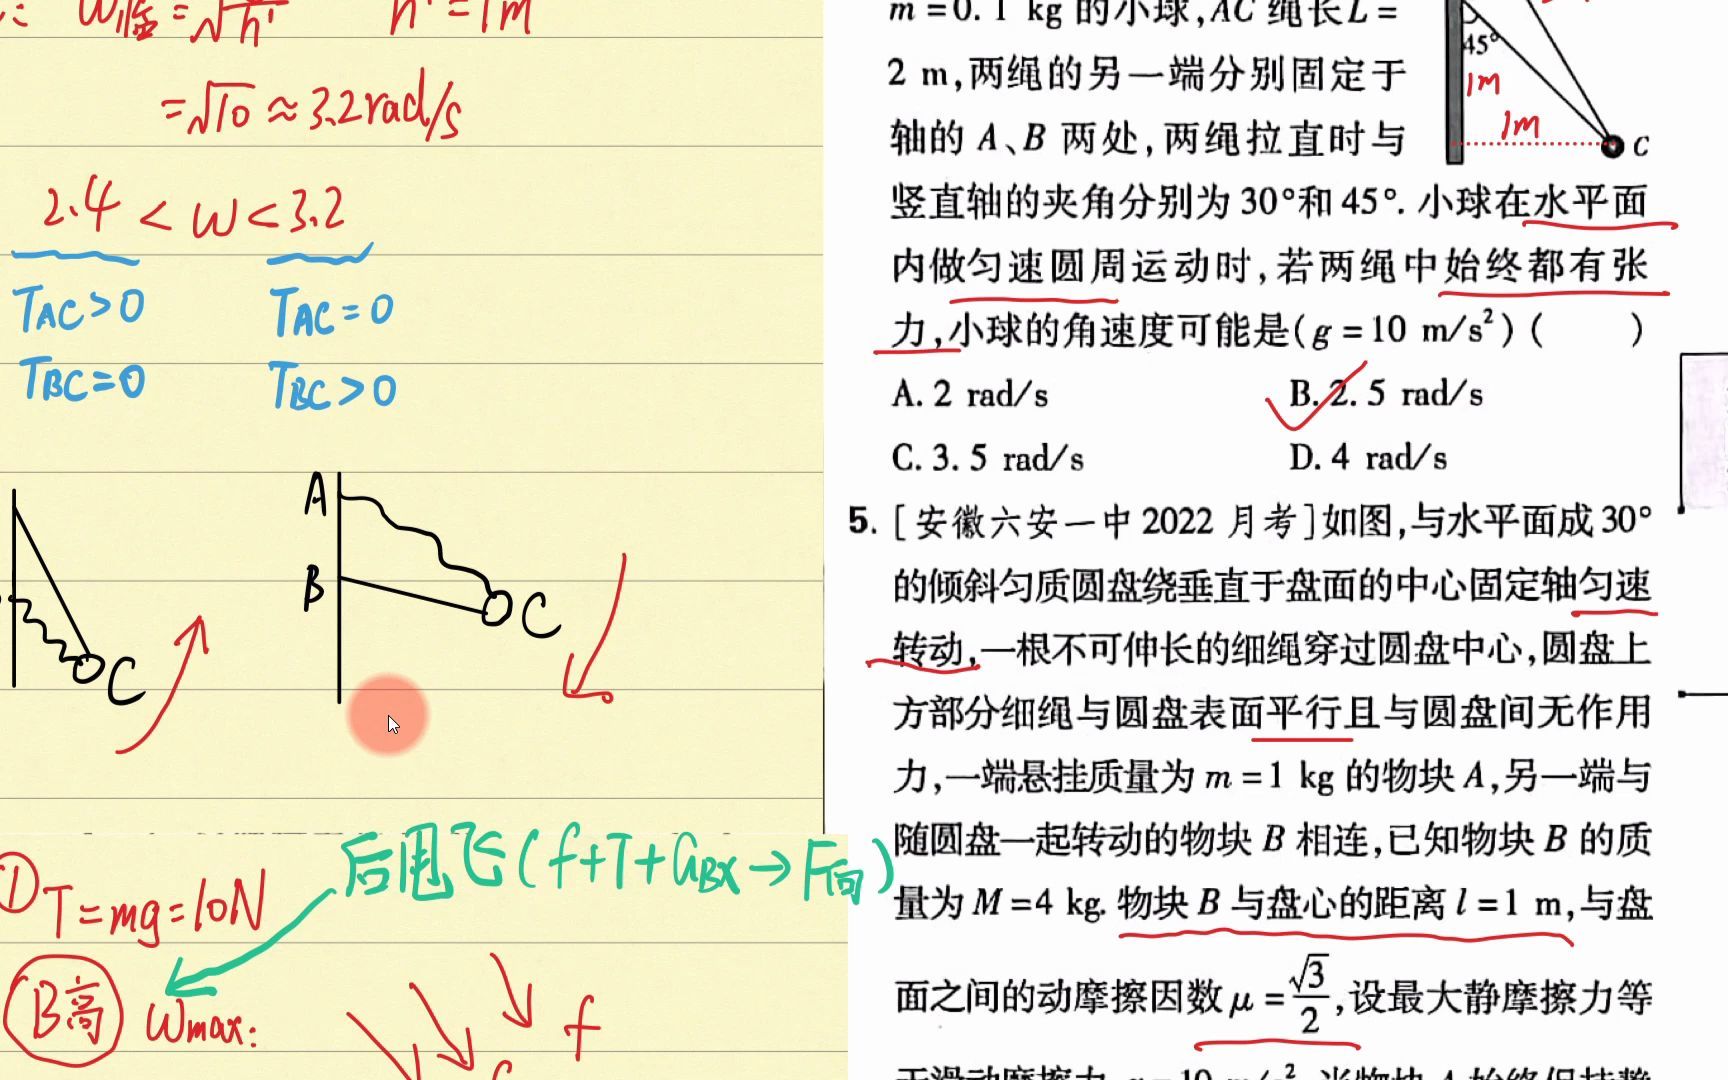 W临=√h' h'=1m
=√10≈3.2rad/s
2.4<W<3.2
TAC>0 TAC=0
TBC=0 TBC>0
A
B
C
C
后甩飞(f+T+GBX→F向)
① T=mg=10N
B高 Wmax:
f
m=0.1 kg 的小球,AC 绳长L=
2 m,两绳的另一端分别固定于
轴的 A、B 两处,两绳拉直时与
竖直轴的夹角分别为30°和45°.小球在水平面
内做匀速圆周运动时,若两绳中始终都有张
力,小球的角速度可能是(g=10 m/s²)( )
A. 2 rad/s B. 2.5 rad/s
C. 3.5 rad/s D. 4 rad/s
45°
1m
1m
C
5. [安徽六安一中2022月考]如图,与水平面成30°
的倾斜匀质圆盘绕垂直于盘面的中心固定轴匀速
转动,一根不可伸长的细绳穿过圆盘中心,圆盘上
方部分细绳与圆盘表面平行且与圆盘间无作用
力,一端悬挂质量为m=1 kg的物块A,另一端与
随圆盘一起转动的物块B相连,已知物块B的质
量为M=4 kg.物块B与盘心的距离l=1 m,与盘
面之间的动摩擦因数μ=√3/2,设最大静摩擦力等